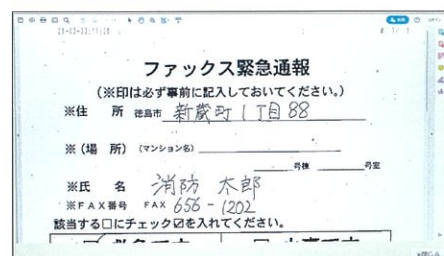 ファックス緊急通報
(※印は必ず事前に記入しておいてください。)
※住 所 徳島市 新蔵町1丁目88
※(場 所) (マンション名)
号棟 号室
※氏 名 消防 太郎
※FAX番号 FAX 656-1202
該当する□にチェック☑を入れてください。